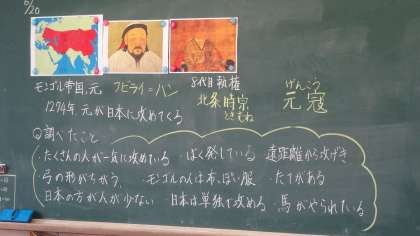 6/20
モンゴル帝国,元 フビライ=ハン 8代目執権 げんこう
北条時宗 元寇
ときむね
1274年、元が日本に攻めてくる
Q調べたこと
・たくさんの人が一気に攻めている ・ばく発している 遠距離から攻げき
・弓の形がちがう ・モンゴルの人は布っぽい服 ・たてがある
日本の方が人が少ない ・日本は単独で攻める ・馬がやられている